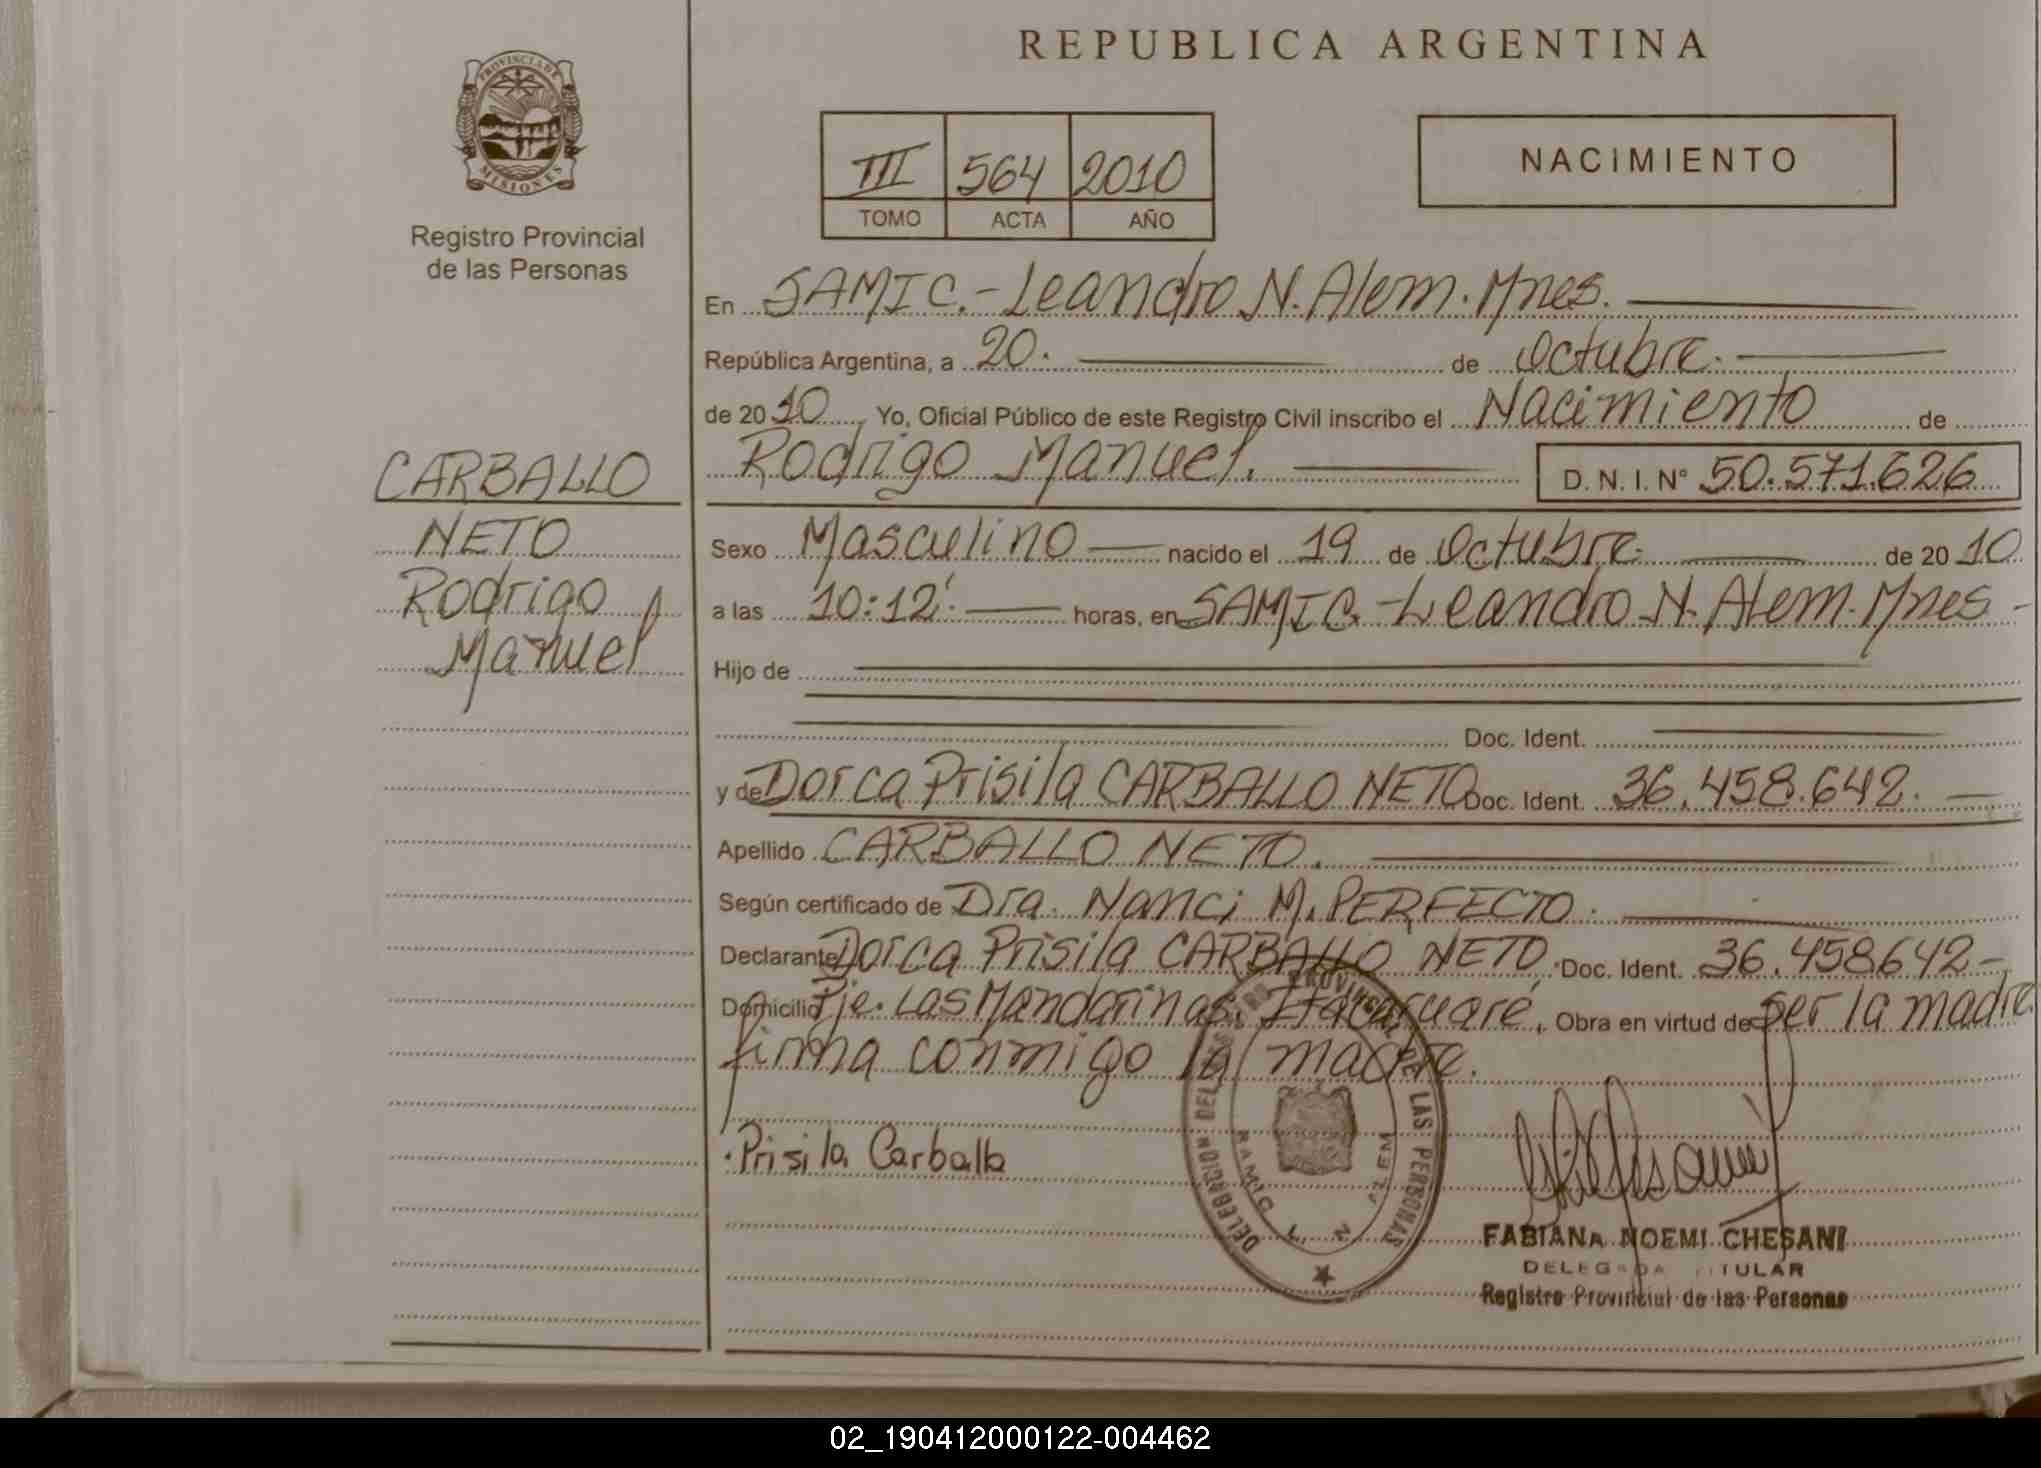 REPUBLICA ARGENTINA
PROVINCIA DE
MISIONES
Registro Provincial
de las Personas
III 564 2010
TOMO ACTA AÑO
NACIMIENTO
En SAMIC.- Leandro N. Alem. Mnes.
República Argentina, a 20. de Octubre.
de 2010 Yo, Oficial Público de este Registro Civil inscribo el Nacimiento de
Rodrigo Manuel. D.N.I. N° 50.571.626
CARBALLO
NETO
Rodrigo
Manuel
Sexo Masculino nacido el 19 de Octubre. de 2010
a las 10:12'. horas, en SAMIC. - Leandro N. Alem. Mnes -
Hijo de
Doc. Ident.
y de Dorca Prisila CARBALLO NETO Doc. Ident. 36.458.642.
Apellido CARBALLO NETO.
Según certificado de Dra. Nanci M. PERFECTO.
Declarante Dorca Prisila CARBALLO NETO. Doc. Ident. 36.458642-
Domicilio Pje. Las Mandarinas. Itacaruaré, Obra en virtud de ser la madre
firma conmigo la madre.
Prisila Carballo
DELEGACION DEL REGISTRO PROVINCIAL DE LAS PERSONAS
SAMIC L. N. ALEM
FABIANA NOEMI CHESANI
DELEGADA TITULAR
Registro Provincial de las Personas
02_190412000122-004462